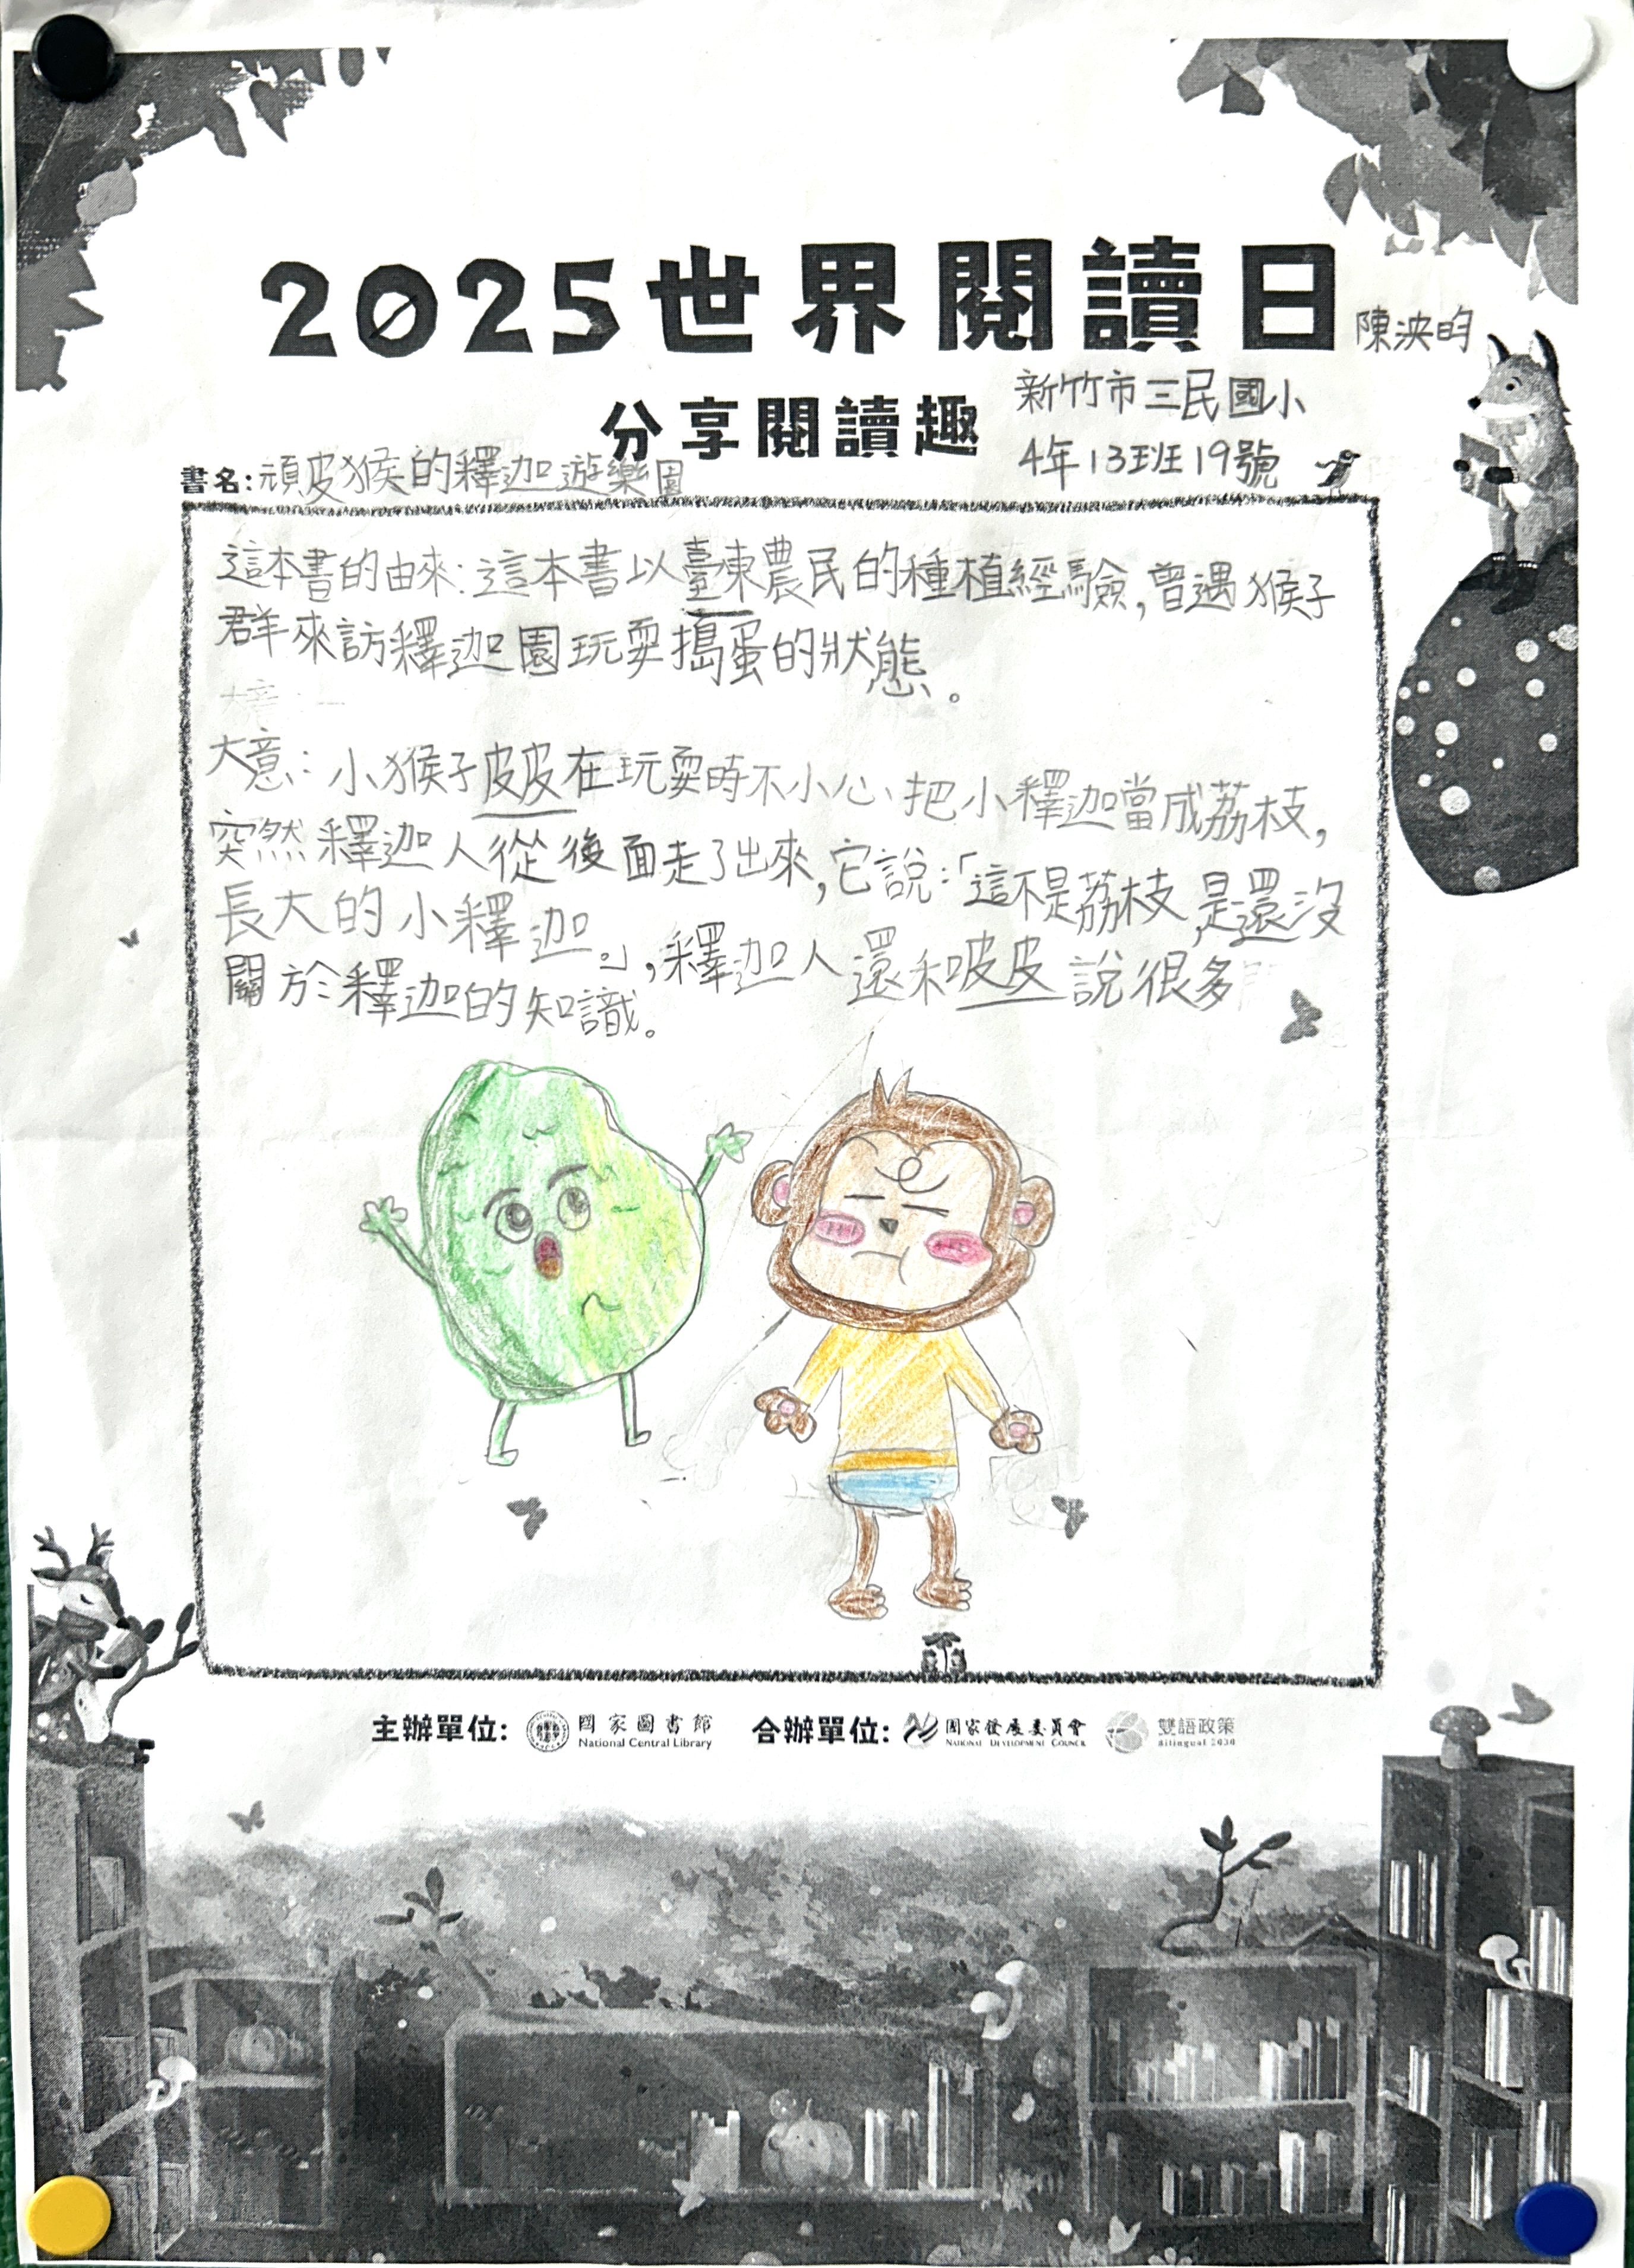 2025世界閱讀日
陳泱昀
分享閱讀趣
新竹市三民國小
4年13班19號
書名:頑皮猴的釋迦遊樂園
這本書的由來:這本書以臺東農民的種植經驗,曾遇猴子
群來訪釋迦園玩耍搗蛋的狀態。
大意:小猴子皮皮在玩耍時不小心把小釋迦當成荔枝,
突然釋迦人從後面走了出來,它說:「這不是荔枝,是還沒
長大的小釋迦。」,釋迦人還和皮皮說很多
關於釋迦的知識。
主辦單位: 國家圖書館 National Central Library 合辦單位: 國家發展委員會 NATIONAL DEVELOPMENT COUNCIL 雙語政策 Bilingual 2030